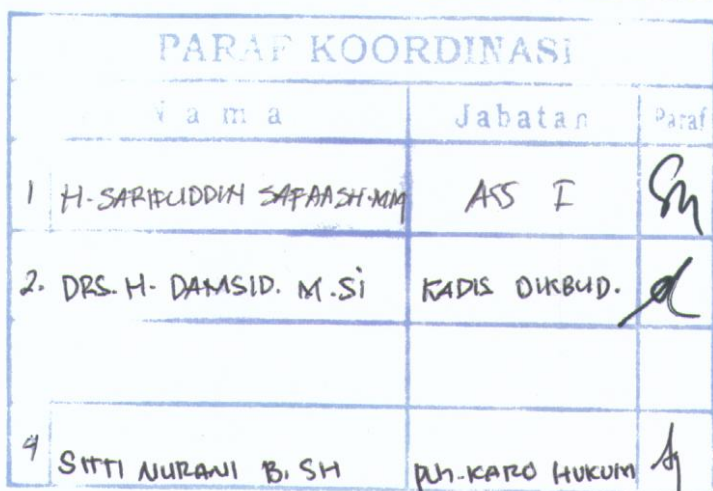 PARAF KOORDINASI
Nama Jabatan Paraf
1 H. SARIFUDDIN SAFAA SH. MM ASS I
2. DRS. H. DAMSID. M.Si KADIS DIKBUD.
4 SITTI NURANI B. SH Plh. KARO HUKUM